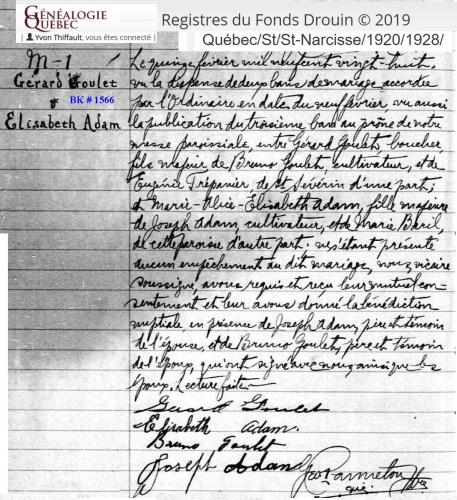 GÉNÉALOGIE
QUÉBEC
Yvon Thiffault, vous êtes connecté |
Registres du Fonds Drouin © 2019
Québec/St/St-Narcisse/1920/1928/
M-1
Gérard Goulet
&
Elisabeth Adam
BK # 1566
Le quinze février mil neuf cent vingt-huit,
vu la dispense de deux bans de mariage accordée
par l'Ordinaire en date du neuf février, vu aussi
la publication du troisième ban au prône de notre
messe paroissiale, entre Gérard Goulet, boucher
fils majeur de Bruno Goulet, cultivateur, et de
Eugénie Trépanier, de St Sévérin d'une part;
et Marie-Alice-Élisabeth Adam, fille majeure
de Joseph Adam, cultivateur, et de Marie Baril,
de cette paroisse d'autre part. ne s'étant présenté
aucun empêchement au dit mariage, nous, vicaire
soussigné, avons requis et reçu leur mutuel con-
sentement et leur avons donné la bénédiction
nuptiale en présence de Joseph Adam, père et témoin
de l'épouse, et de Bruno Goulet, père et témoin
de l'époux, qui ont signé avec nous ainsi que les
époux. Lecture faite
Gerard Goulet
Elisabeth Adam.
Bruno Goulet
Joseph Adam